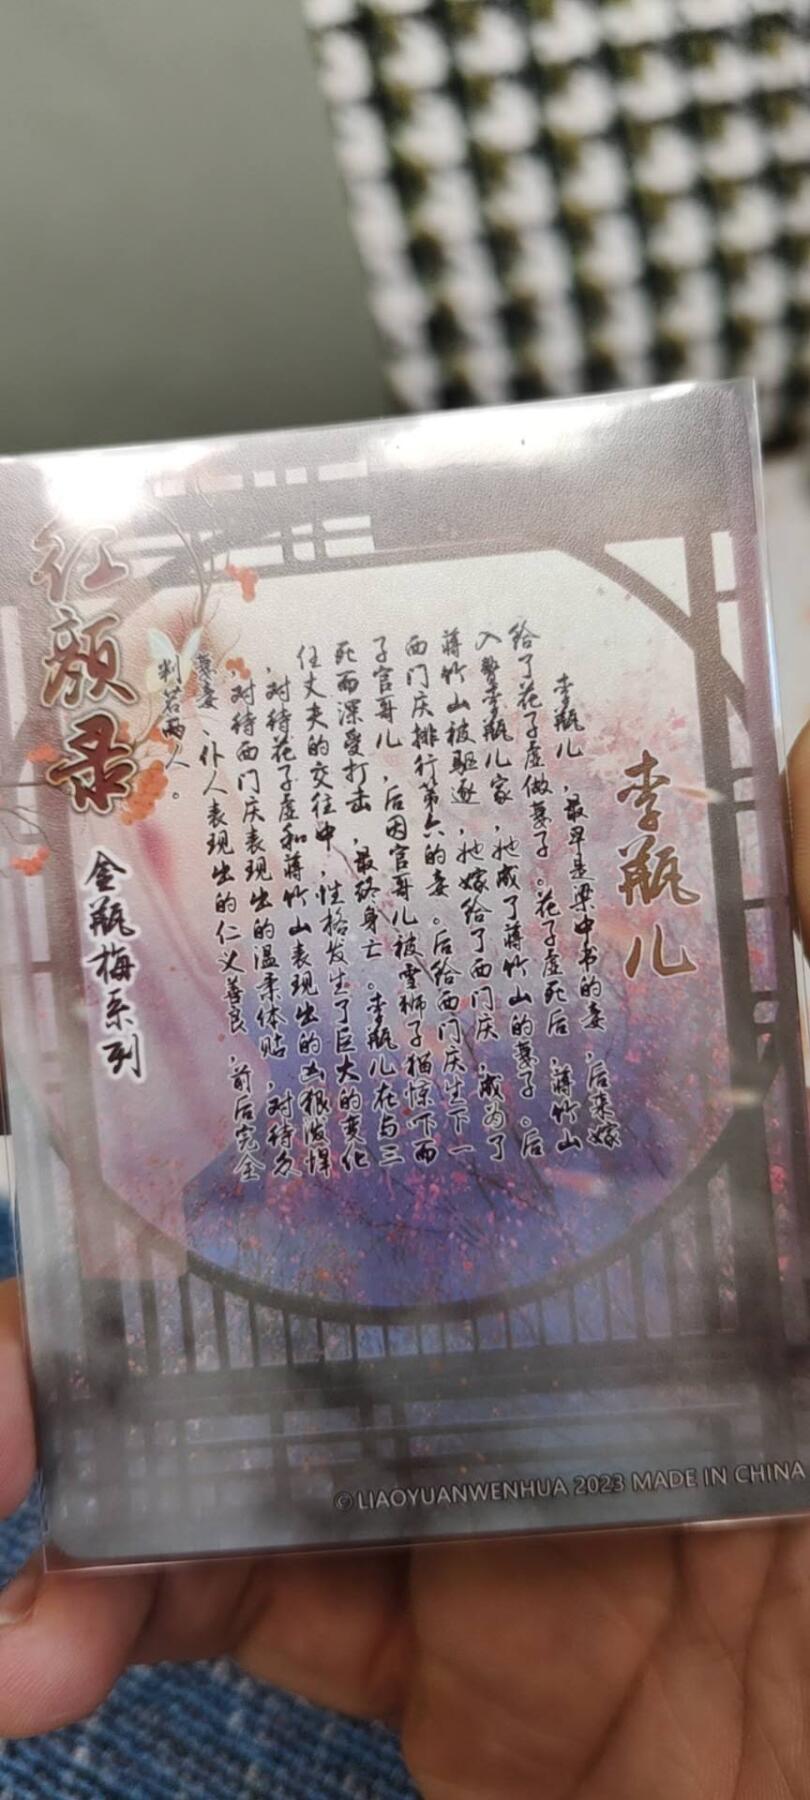 李瓶儿
李瓶儿,最早是梁中书的妾,后来嫁
给了花子虚做妻子。花子虚死后,蒋竹山
入赘李瓶儿家,她成了蒋竹山的妻子。后
蒋竹山被驱逐,她嫁给了西门庆,成为了
西门庆排行第六的妾。后给西门庆生下一
子官哥儿,后因官哥儿被雪狮子猫惊吓而
死而深受打击,最终身亡。李瓶儿在与三
任丈夫的交往中,性格发生了巨大的变化
,对待花子虚和蒋竹山表现出的凶狠泼悍
,对待西门庆表现出的温柔体贴,对待众
妻妾、仆人表现出的仁义善良,前后完全
判若两人。
红颜录
金瓶梅系列
©LIAOYUANWENHUA 2023 MADE IN CHINA